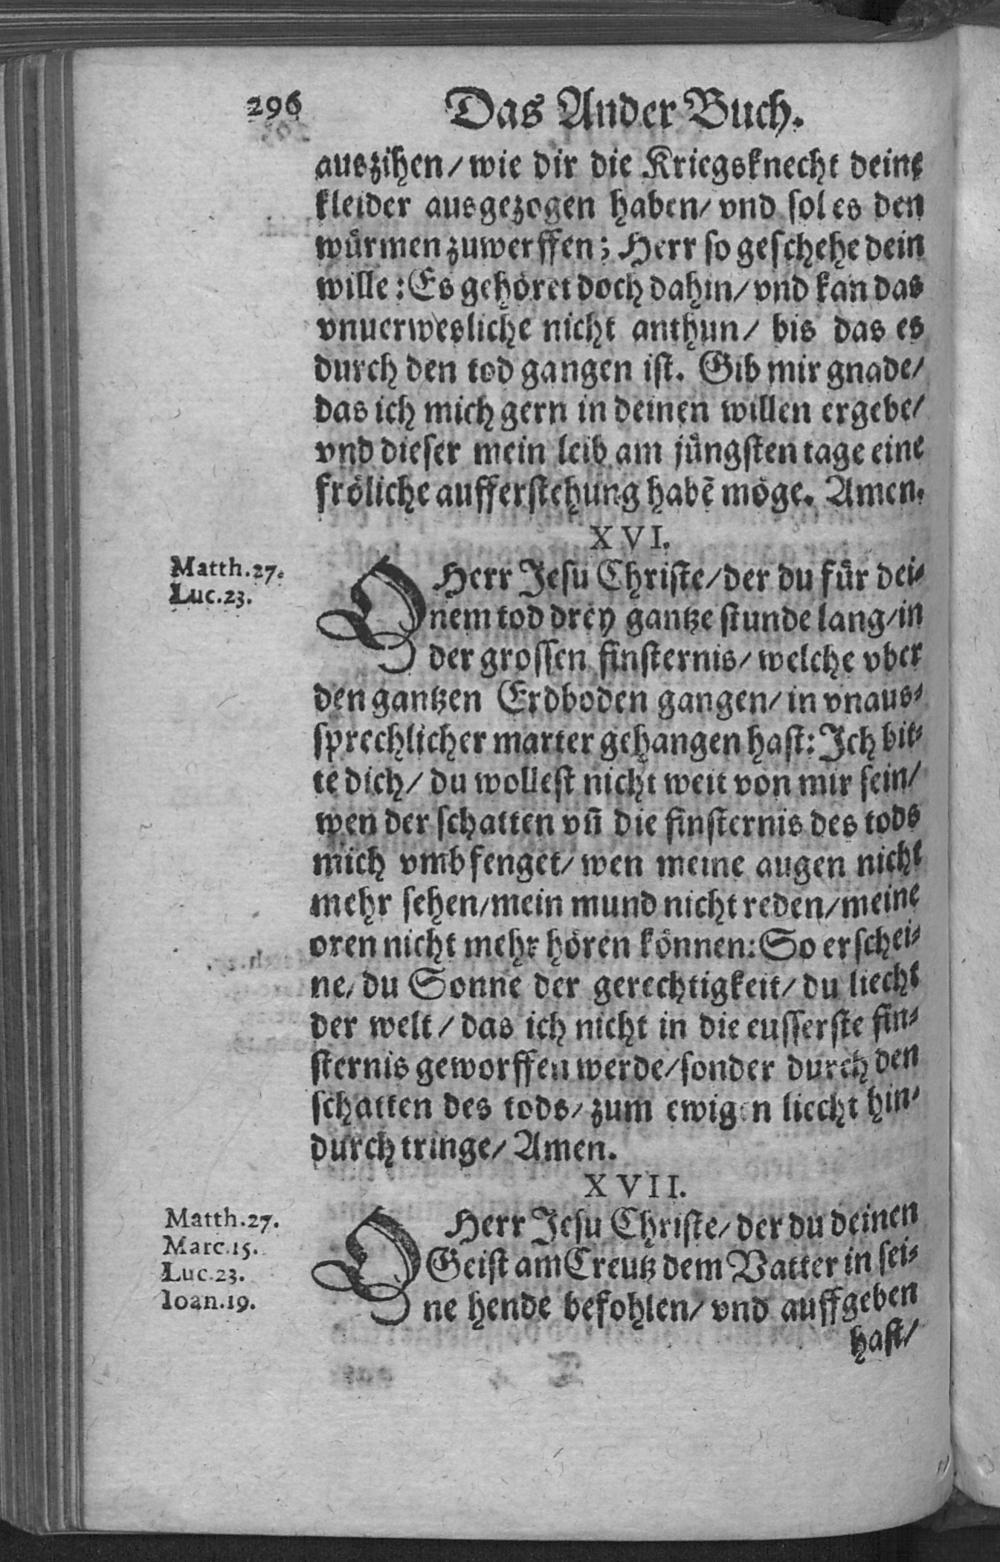 296 Das Ander Buch.
auszihen/ wie dir die Kriegsknecht deine
kleider ausgezogen haben/ vnd sol es den
würmen zuwerffen; Herr so geschehe dein
wille: Es gehöret doch dahin/ vnd kan das
vnuerwesliche nicht anthun/ bis das es
durch den tod gangen ist. Gib mir gnade/
das ich mich gern in deinen willen ergebe/
vnd dieser mein leib am jüngsten tage eine
fröliche aufferstehung habē möge. Amen.
XVI.
Matth.27.
Luc.23.
O Herr Jesu Christe/ der du für dei-
nem tod drey gantze stunde lang/ in
der grossen finsternis/ welche vber
den gantzen Erdboden gangen/ in vnaus-
sprechlicher marter gehangen hast: Ich bit-
te dich/ du wollest nicht weit von mir sein/
wen der schatten vñ die finsternis des tods
mich vmbfenget/ wen meine augen nicht
mehr sehen/ mein mund nicht reden/ meine
oren nicht mehr hören können: So erschei-
ne/ du Sonne der gerechtigkeit/ du liecht
der welt/ das ich nicht in die eusserste fin-
sternis geworffen werde/ sonder durch den
schatten des tods/ zum ewigen liecht hin-
durch tringe/ Amen.
XVII.
Matth.27.
Marc.15.
Luc.23.
Ioan.19.
O Herr Jesu Christe/ der du deinen
Geist am Creutz dem Vatter in sei-
ne hende befohlen/ vnd auffgeben
hast/